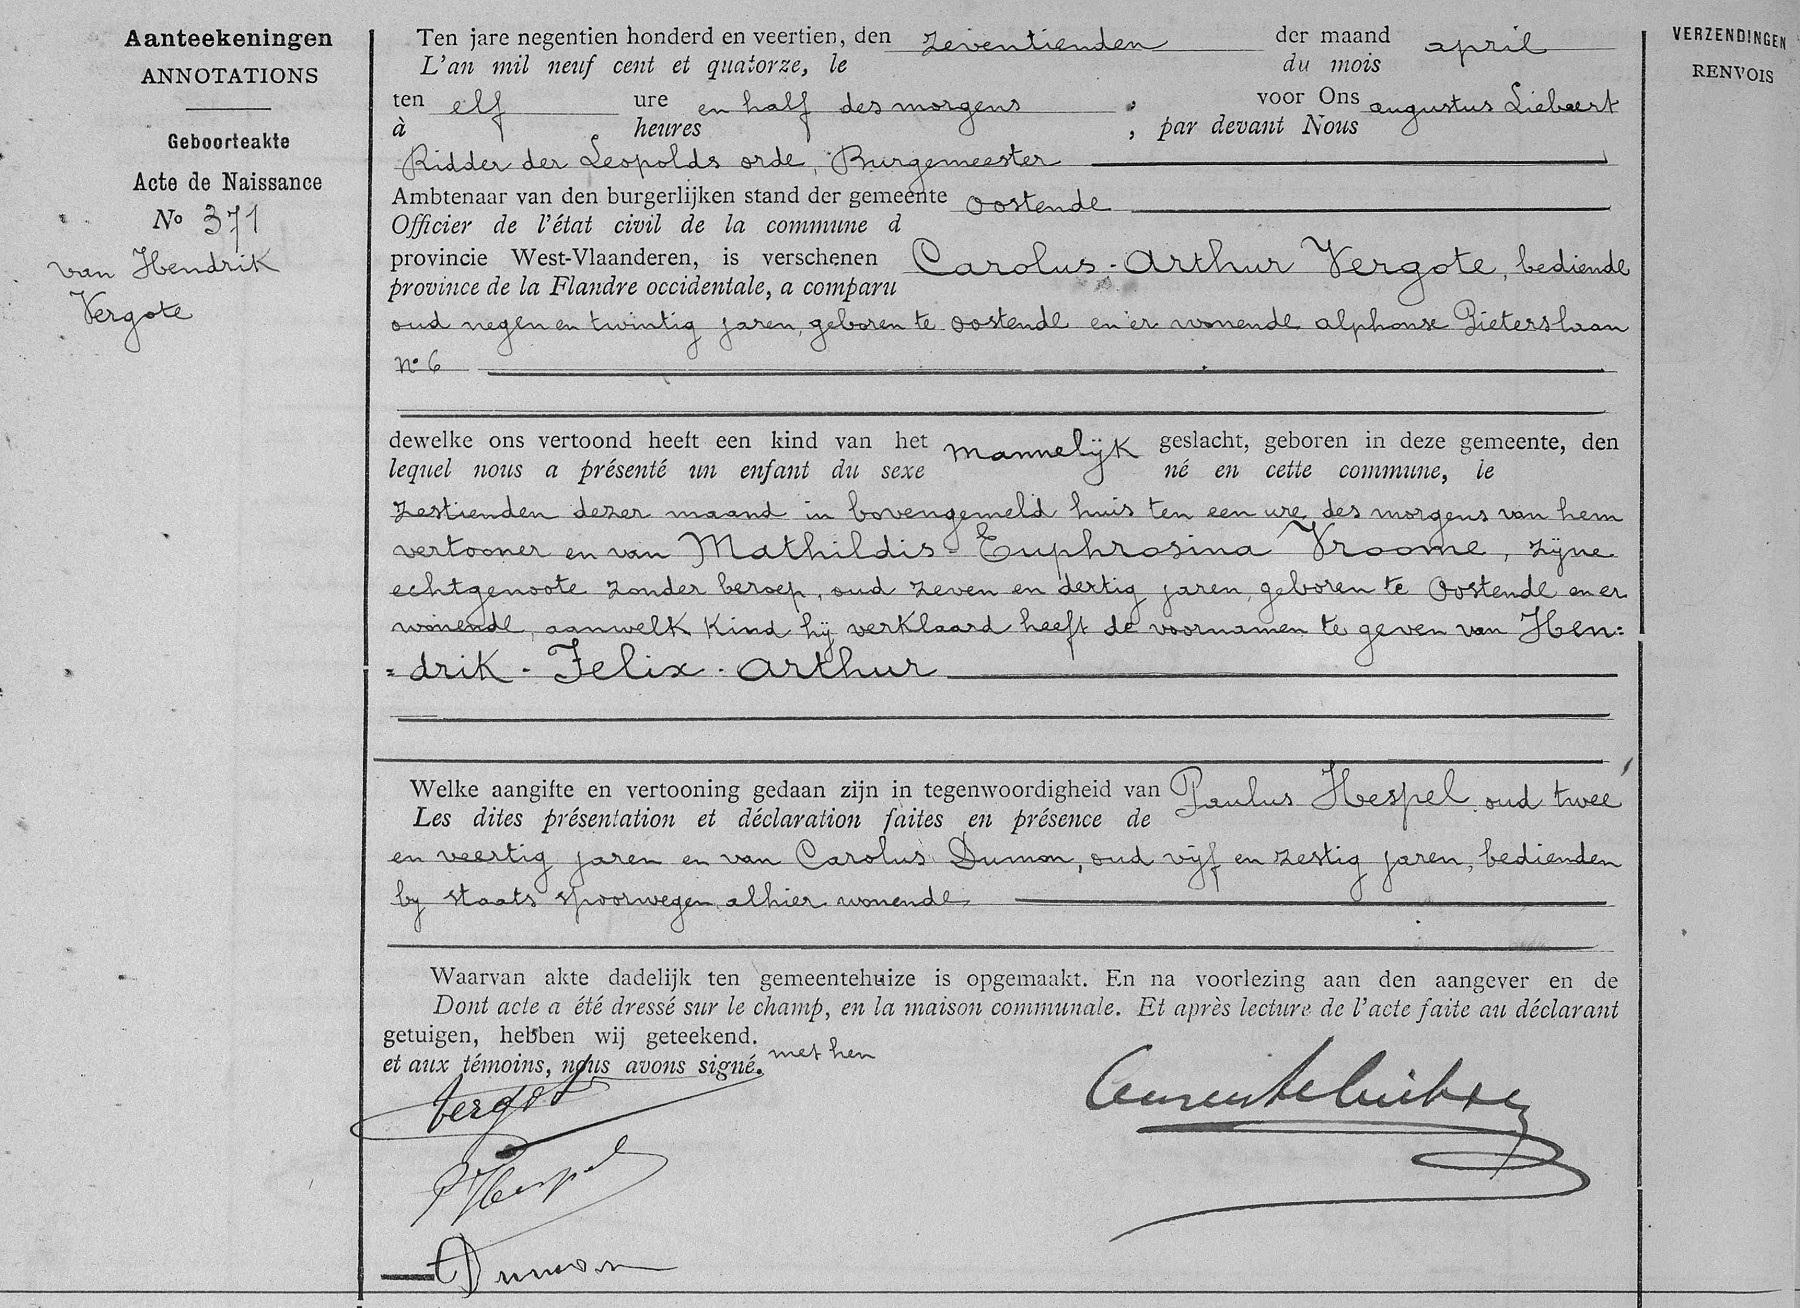 Aanteekeningen
ANNOTATIONS
Geboorteakte
Acte de Naissance
No 371
van Hendrik
Vergote
Ten jare negentien honderd en veertien, den zeventienden der maand april
L'an mil neuf cent et quatorze, le du mois
ten elf ure en half des morgens, voor Ons augustus Liebaert
à heures , par devant Nous
Ridder der Leopolds orde, Burgemeester
Ambtenaar van den burgerlijken stand der gemeente Oostende
Officier de l'état civil de la commune d
provincie West-Vlaanderen, is verschenen Carolus-Arthur Vergote, bediende
province de la Flandre occidentale, a comparu
oud negen en twintig jaren, geboren te Oostende en er wonende alphonse Pieterslaan
No 6
dewelke ons vertoond heeft een kind van het mannelijk geslacht, geboren in deze gemeente, den
lequel nous a présenté un enfant du sexe né en cette commune, le
zestienden dezer maand in bovengemeld huis ten een ure des morgens van hem
vertooner en van Mathildis-Euphrosina Vroome, zijne
echtgenoote zonder beroep, oud zeven en dertig jaren, geboren te Oostende en er
wonende, aanwelk kind hij verklaard heeft de voornamen te geven van Hen=
=drik-Felix-Arthur
Welke aangifte en vertooning gedaan zijn in tegenwoordigheid van Paulus Hespel, oud twee
Les dites présentation et déclaration faites en présence de
en veertig jaren en van Carolus Dumon, oud vijf en zestig jaren, bedienden
by staats spoorwegen alhier wonende
Waarvan akte dadelijk ten gemeentehuize is opgemaakt. En na voorlezing aan den aangever en de
Dont acte a été dressé sur le champ, en la maison communale. Et après lecture de l'acte faite au déclarant
getuigen, hebben wij geteekend. met hen
et aux témoins, nous avons signé.
Vergote
P Hespel
C Dumon
VERZENDINGEN
RENVOIS